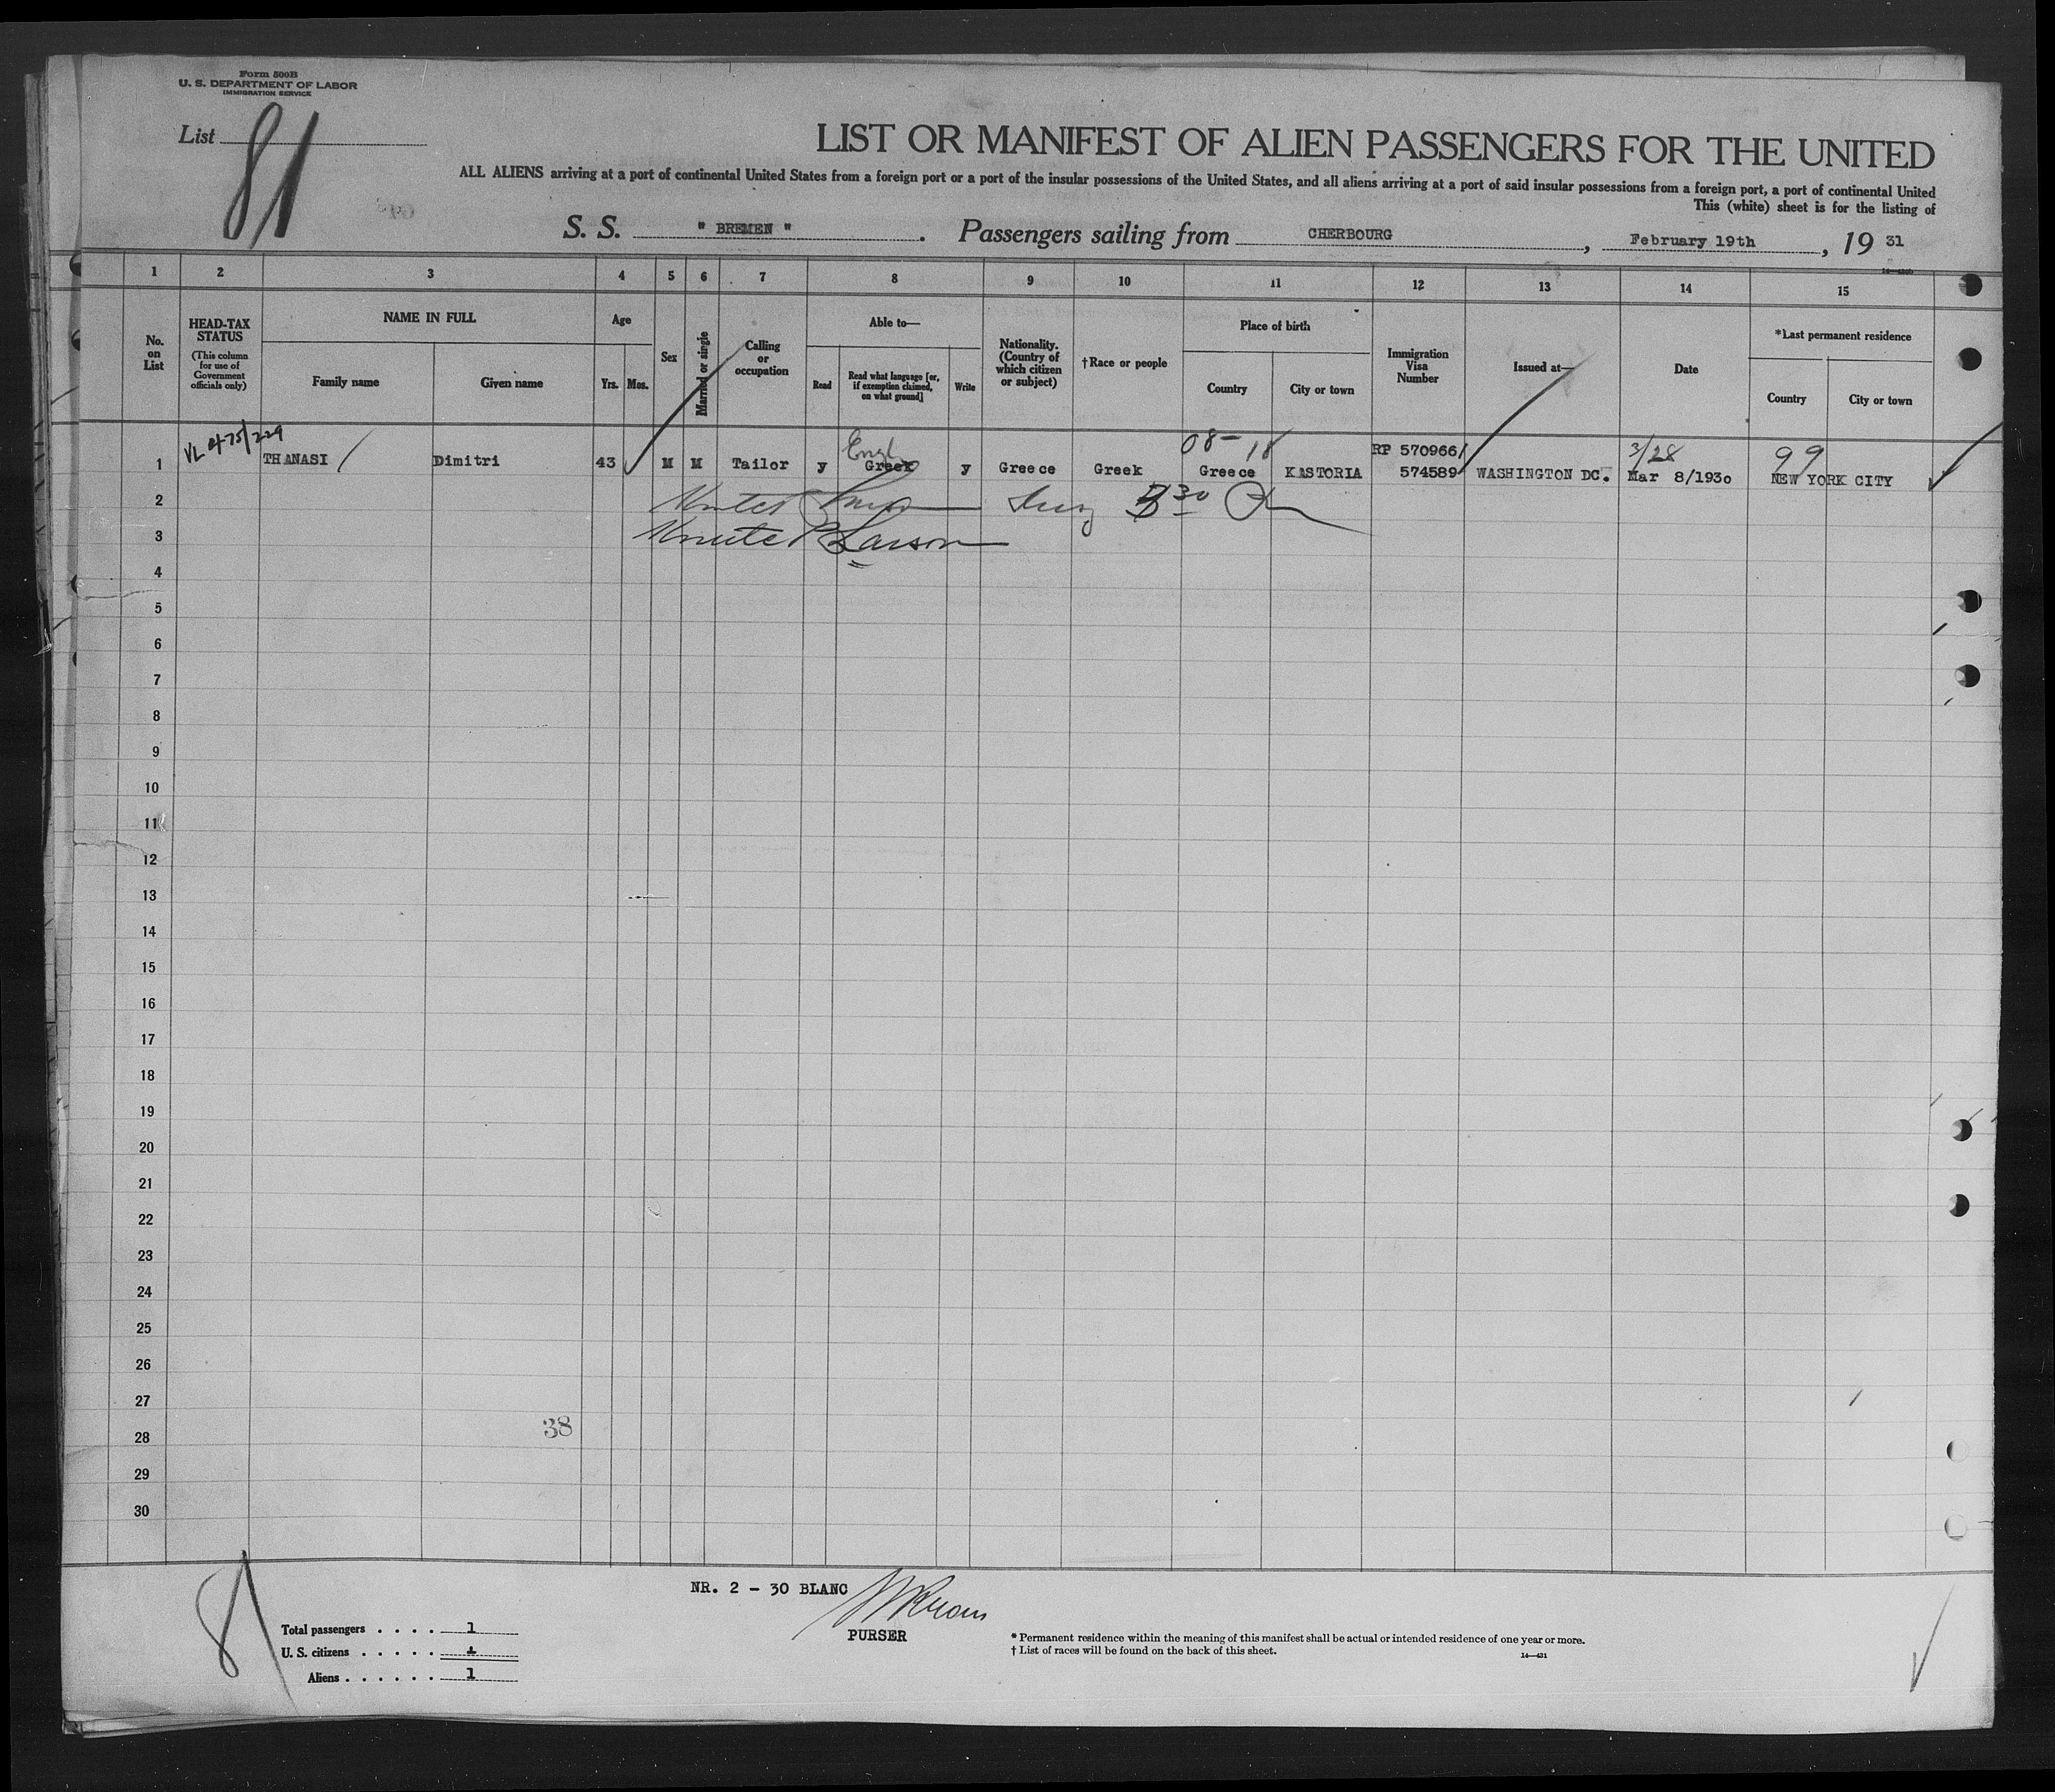 Form 500B
U. S. DEPARTMENT OF LABOR
IMMIGRATION SERVICE
List 81
LIST OR MANIFEST OF ALIEN PASSENGERS FOR THE UNITED
ALL ALIENS arriving at a port of continental United States from a foreign port or a port of the insular possessions of the United States, and all aliens arriving at a port of said insular possessions from a foreign port, a port of continental United
This (white) sheet is for the listing of
S. S. " BREMEN ". Passengers sailing from CHERBOURG, February 19th, 19 31
1 2 3 4 5 6 7 8 9 10 11 12 13 14 15
No. on List
HEAD-TAX STATUS
(This column for use of Government officials only)
NAME IN FULL
Family name
Given name
Age
Yrs. Mos.
Sex
Married or single
Calling or occupation
Able to—
Read
Read what language [or, if exemption claimed, on what ground]
Write
Nationality. (Country of which citizen or subject)
†Race or people
Place of birth
Country
City or town
Immigration Visa Number
Issued at—
Date
*Last permanent residence
Country
City or town
08- 18 RP 570966/ 3/28 99
1 THANASI Dimitri 43 M M Tailor y Engl Greek y Greece Greek Greece KASTORIA 574589 WASHINGTON DC. Mar 8/1930 NEW YORK CITY
2
3 Larson
4
5
6
7
8
9
10
11
12
13
14
15
16
17
18
19
20
21
22
23
24
25
26
27
38
28
29
30
NR. 2 - 30 BLANC
PURSER
81
Total passengers . . . . 1
U. S. citizens . . . . .
Aliens . . . . . . 1
* Permanent residence within the meaning of this manifest shall be actual or intended residence of one year or more.
† List of races will be found on the back of this sheet.
14—431